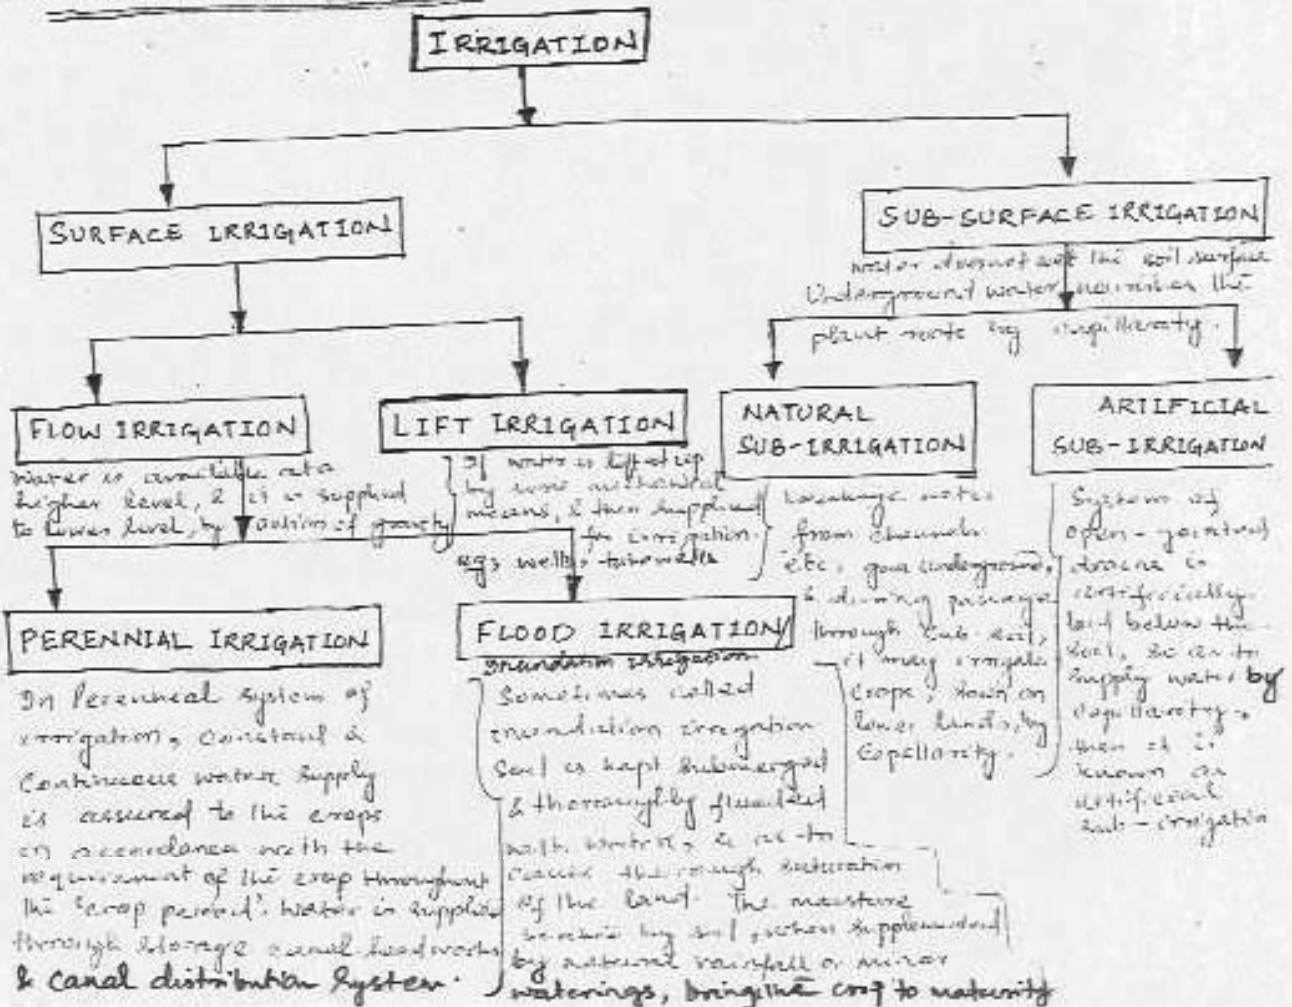 IRRIGATION
SURFACE IRRIGATION
SUB-SURFACE IRRIGATION
water doesnot wet the soil surface
Underground water nourishes the
plant roots by capillarity.
FLOW IRRIGATION
Water is available at a
higher level, & it is supplied
to lower level, by action of gravity
LIFT IRRIGATION
If water is lifted up
by some mechanical
means, & then supplied
for irrigation.
eg; wells, tubewells
NATURAL
SUB-IRRIGATION
Leakage water
from channels
etc, goes underground,
& during passage
through sub-soil,
it may irrigate
crops, sown on
lower lands, by
Capillarity.
ARTIFICIAL
SUB-IRRIGATION
System of
open-jointed
drains is
artificially
laid below the
soil, so as to
supply water by
capillarity,
then it is
known as
artificial
sub-irrigatio
PERENNIAL IRRIGATION
In Perenneal system of
irrigation, constant &
continuous water supply
is assured to the crops
in accordance with the
requirement of the crop throughout
the 'crop period'. Water is supplied
through storage canal headworks
& canal distribution system.
FLOOD IRRIGATION/
Inundation irrigation
Sometimes called
inundation irrigation
Soil is kept submerged
& thoroughly flooded
with water, so as to
cause thorough saturation
of the land. The moisture
by soil, when supplemented
by natural rainfall or minor
waterings, bring the crop to maturity